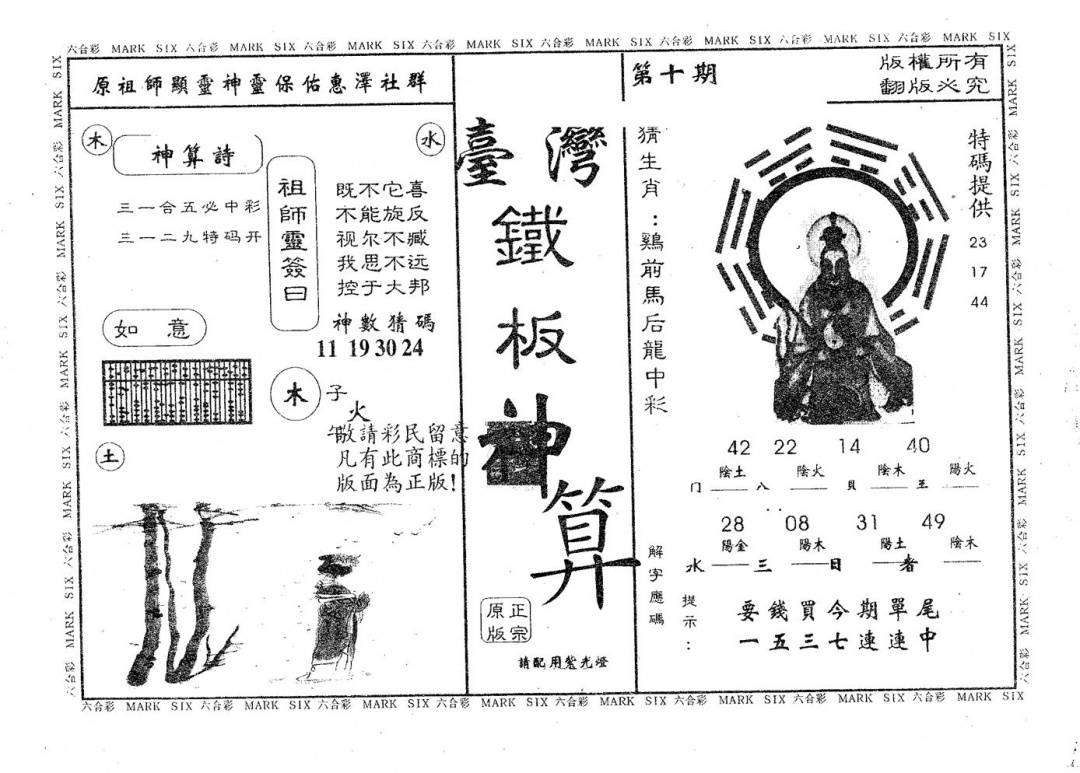 六合彩 MARK SIX 六合彩 MARK SIX 六合彩 MARK SIX 六合彩 MARK SIX 六合彩 MARK SIX 六合彩 MARK SIX 六合彩 MARK SIX 六合彩 MARK SIX
原祖師顯靈神靈保佑惠澤社群
木
水
神算詩
三一合五必中彩
三一二九特码开
祖師靈簽曰
既不它喜
不能旋反
视尔不臧
我思不远
控于大邦
神數猜碼
11 19 30 24
如意
木
子
火
午
敬請彩民留意
凡有此商標的
版面為正版!
土
臺灣
鐵
板
神
算
原正
版宗
請配用紫光燈
第十期
版權所有
翻版必究
猜生肖:鷄前馬后龍中彩
特碼提供
23
17
44
42 22 14 40
陰土 陰火 陰木 陽火
门 八 貝 至
28 08 31 49
陽金 陽木 陽土 陰木
水 三 日 者
解字應碼
提示:
要錢買今期單尾
一五三七連連中
六合彩 MARK SIX 六合彩 MARK SIX 六合彩 MARK SIX 六合彩 MARK SIX 六合彩 MARK SIX 六合彩 MARK SIX 六合彩 MARK SIX 六合彩 MARK SIX